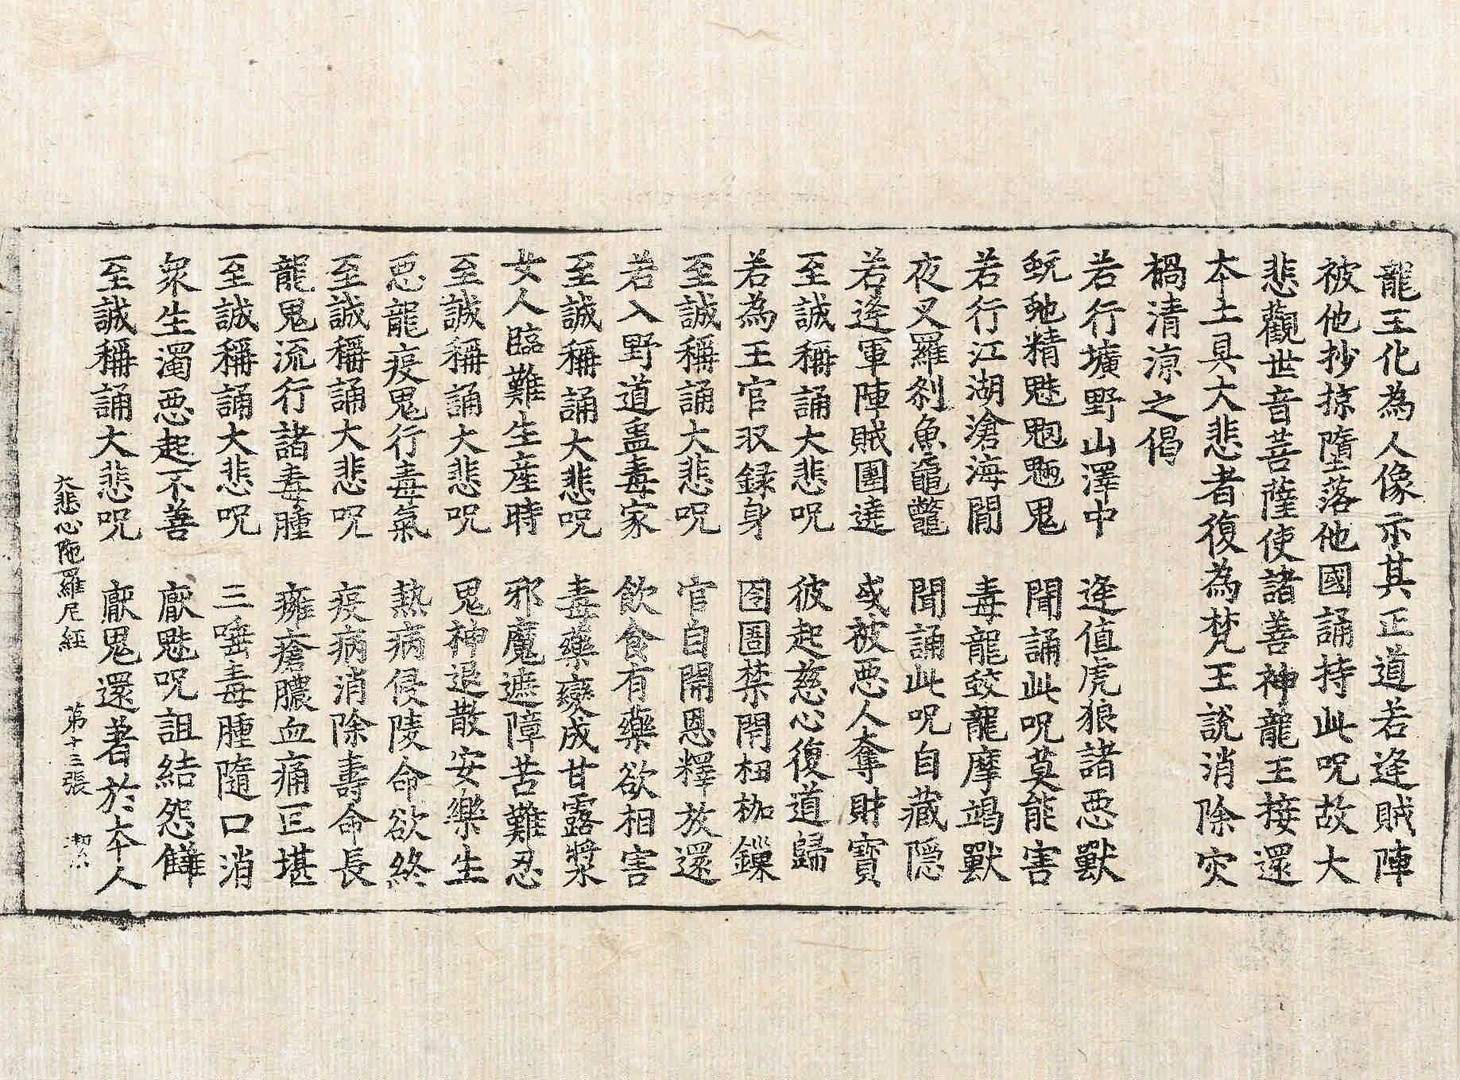 龍王化為人像示其正道若逢賊陣
被他抄掠墮落他國誦持此呪故大
悲觀世音菩薩使諸善神龍王接還
本土具大悲者復為梵王說消除灾
禍清凉之偈
若行壙野山澤中　逢值虎狼諸恶獸
蚖虵精魅魍魎鬼　聞誦此呪莫能害
若行江湖滄海間　毒龍蛟龍摩竭獸
夜叉羅刹魚黿鼈　聞誦此呪自藏隠
若逢軍陣賊圍遶　或被恶人奪財寳
至誠稱誦大悲呪　彼起慈心復道歸
若為王官収録身　囹圄禁閉杻枷鏁
至誠稱誦大悲呪　官自開恩釋放還
若入野道蠱毒家　飲食有藥欲相害
至誠稱誦大悲呪　毒藥變成甘露漿
女人臨難生産時　邪魔遮障苦難忍
至誠稱誦大悲呪　鬼神退散安樂生
恶龍疫鬼行毒氣　熱病侵陵命欲終
至誠稱誦大悲呪　疫病消除壽命長
龍鬼流行諸毒腫　癰瘡膿血痛叵堪
至誠稱誦大悲呪　三唾毒腫隨口消
衆生濁恶起不善　厭魅呪詛結怨讎
至誠稱誦大悲呪　厭鬼還著於本人
大悲心陁羅尼經　第十三張